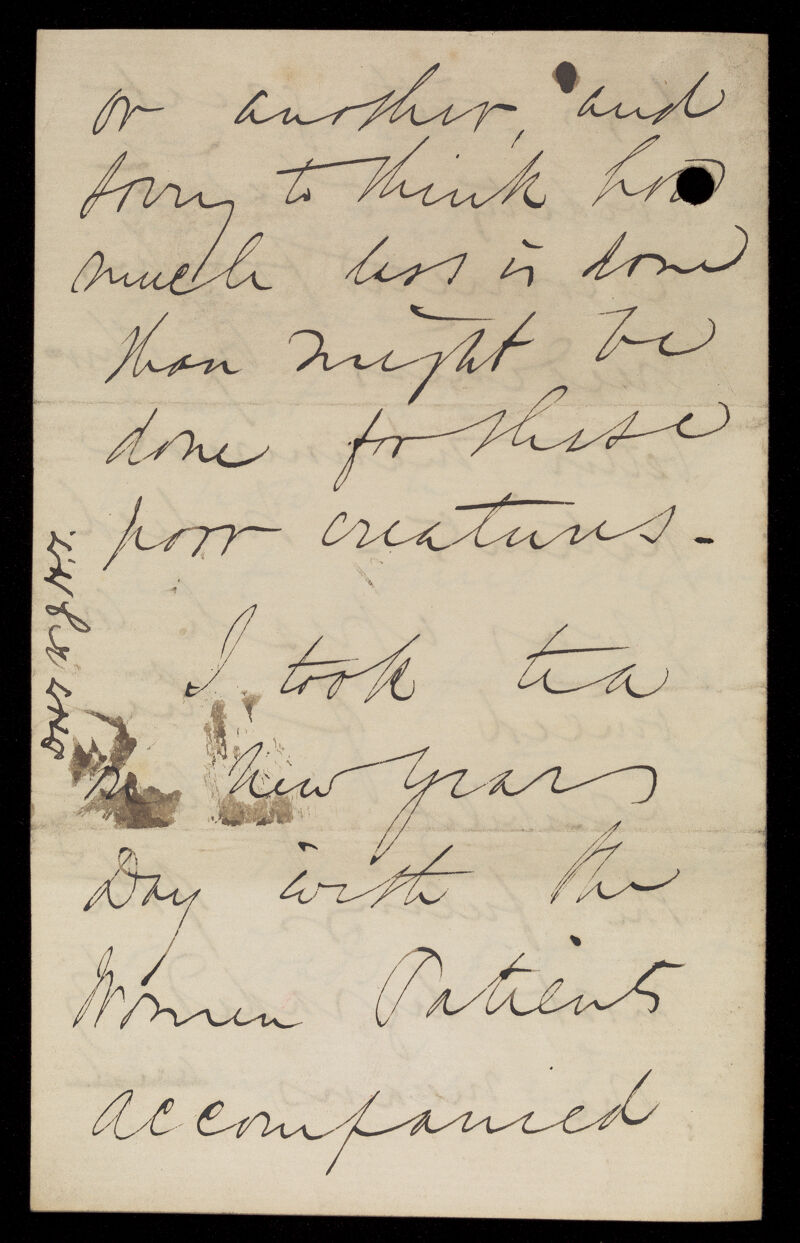 or another, and
sorry to think how
much less is done
than might be
done for these
poor creatures -
I took tea
on New Years
Day with the
Women Patients
accompanied